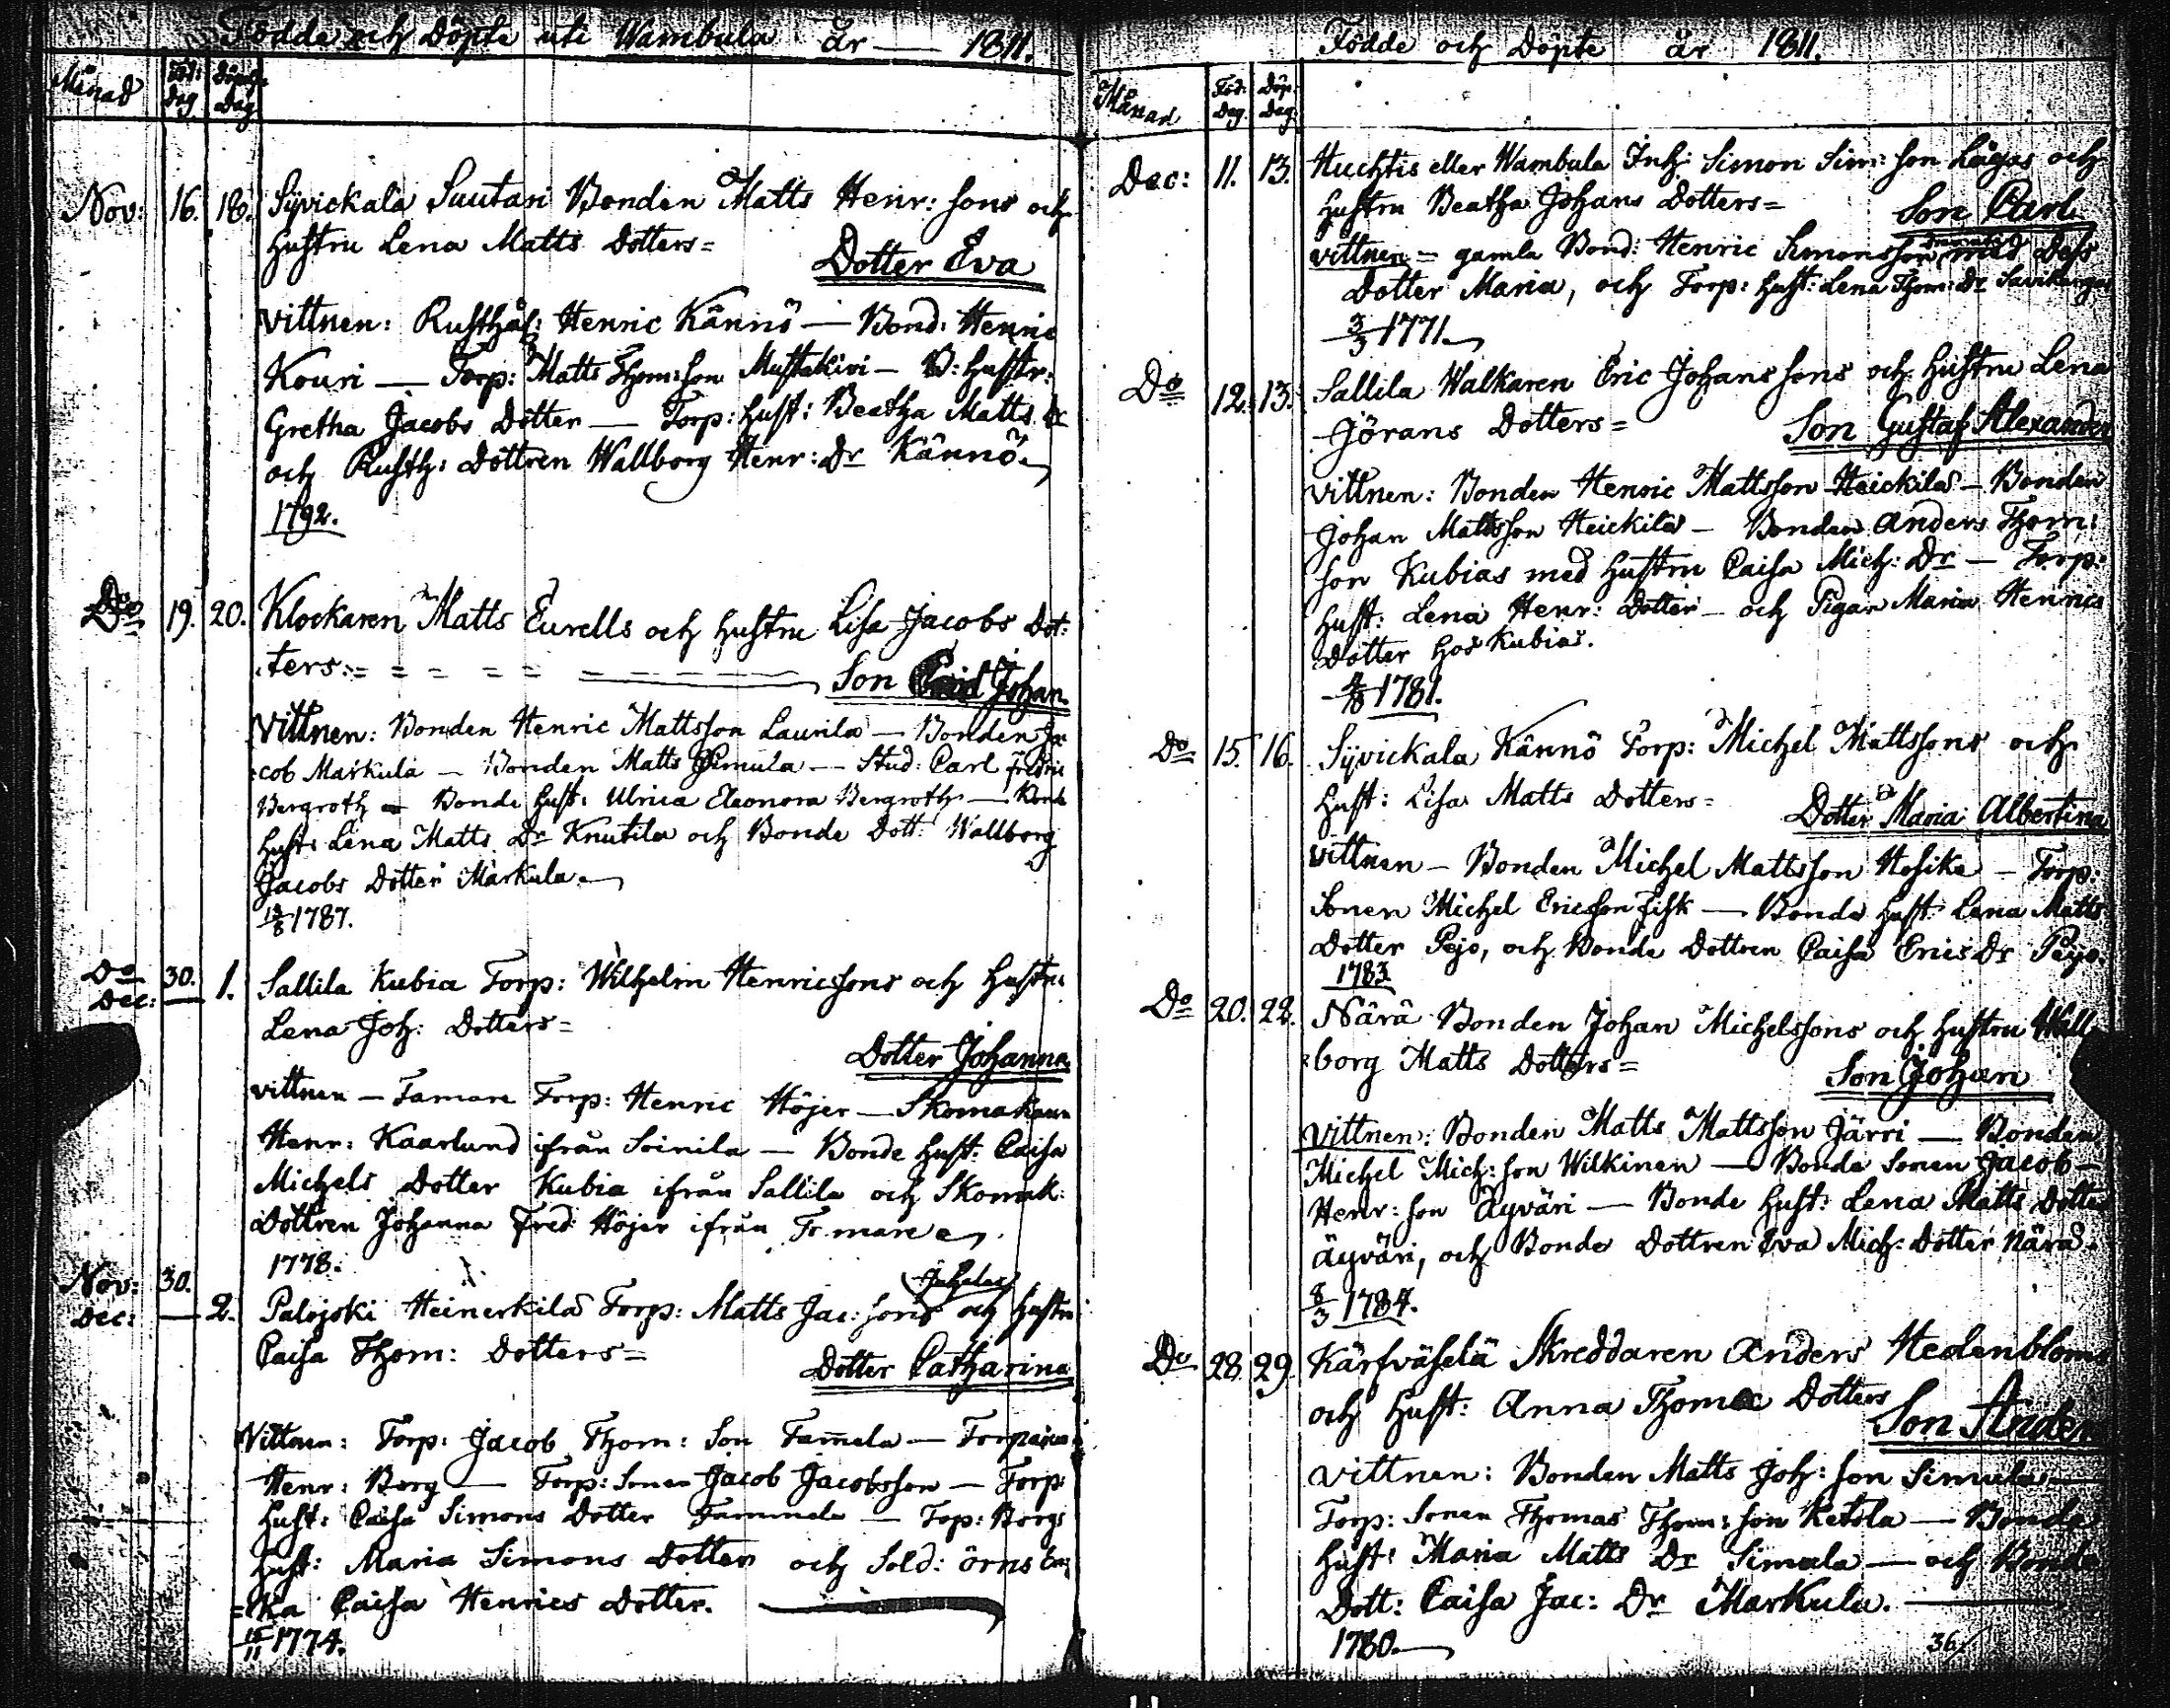 Födde och Döpte uti Wambula år 1811.
Månad Föd: dag Döpelse Dag
Nov: 16. 18. Syvickala Suutari Bonden Matts Henr: sons och
hustru Lena Matts Dotters=
Dotter Eva
Vittnen: Rusthål: Henric Kännö — Bond: Henric
Kouri — Torp: Matts Thom: son Mustakivi — B: hustr:
Gretha Jacobs Dotter — Torp: hust: Beatha Matts Dr
och Rusth: Dottren Wallborg Henr: Dr Kännö.
1792.
Do 19. 20. Klockaren Matts Eurells och hustru Lisa Jacobs Dot:
ters:= = = = =
Son Johan.
Vittnen: Bonden Henric Mattsson Laurila — Bonden Ja
cob Markula — Bonden Matts Simula — Stud: Carl Fredric
Bergroth — Bonde hust: Ulrica Eleonora Bergroth — Bonde
hust: Lena Matts Dr Knutila och Bonde Dott: Wallborg
Jacobs Dotter Markula.
1787.
Do 30.
Dec: — 1. Sallila Kubia Torp: Wilhelm Henricsons och hustru
Lena Joh: Dotters=
Dotter Johanna.
Vittnen — Tamare Torp: Henric Höjer — Skomakaren
Henr: Kaarlund ifrån Soinila — Bonde hust: Caisa
Michels Dotter Kubia ifrån Sallila och Skomak:
Dottren Johanna Fred: Höjer ifrån
1778.
Nov: 30.
Dec: — 2. Palojoki Heinerkilä Torp: Matts Jac: sons och hustru
Caisa Thom: Dotters=
Dotter Catharina
Vittnen: Torp: Jacob Thom: Son Tamela — Torparen
Henr: Borg — Torp: Sonen Jacob Jacobsson — Torp:
hust: Caisa Simons Dotter Tammela — Top: Borgs
hust: Maria Simons Dotter och Sold: örns En
=ka Caisa Henrics Dotter.
15/11 1774.
Födde och Döpte år 1811.
Månad Föd: Dag. Döp: Dag:
Dec: 11. 13. Huchtis eller Wambula Inh: Simon Sim: son Lägas och
hustru Beatha Johans Dotters=
Son Carl
Vittnen = gamla Bond: Henric Simonsson med Dess
Dotter Maria, och Torp: hust: Lena Thom: Dr
3/3 1771.
Do 12. 13. Sallila Walkaren Eric Johanssons och hustru Lena
Jörans Dotters=
Son Gustaf Alexander
Vittnen: Bonden Henric Mattsson Heickilä — Bonden
Johan Mattsson Heickilä — Bonden Anders Thom:
son Kubias med hustru Caisa Mich: Dr — Torp:
hust: Lena Henr: Dotter — och Pigan Maria Henrics
Dotter hos Kubias.
1781.
Do 15. 16. Syvickala Kännö Torp: Michel Mattssons och
hust: Lisa Matts Dotters=
Dotter Maria Albertina
Vittnen — Bonden Michel Mattsson Hosike — Torp:
Sonen Michel Ericsson Fisk — Bonde hust: Lena Matts
Dotter Pejo, och Bonde Dottren Caisa Erics Dr Pejo.
1783
Do 20. 22. Närä Bonden Johan Michelssons och hustru Wall
=borg Matts Dotters=
Son Johan
Vittnen: Bonden Matts Mattsson Järri — Bonden
Michel Mich: son Wilkinen — Bonde Sonen Jacob —
Henr: son Äyväri — Bonde hust: Lena Matts Dotter
Äyväri, och Bonde Dottren Eva Mich: Dotter Närä.
8/3 1784.
Do 28. 29. Kärfväselä Skreddaren Anders Hedenbloms
och hust: Anna Thomæ Dotters
Son Anders
Vittnen: Bonden Matts Joh: son Simula —
Torp: Sonen Thomas Thom: son Ketola — Bonde
hust: Maria Matts Dr Simula — och Bonde
Dott: Caisa Jac: Dr Markula.
1780.
36